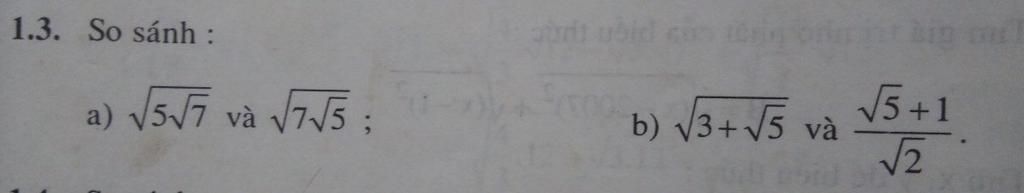 1.3. So sánh :
a) $\sqrt{5\sqrt{7}}$ và $\sqrt{7\sqrt{5}}$ ; b) $\sqrt{3+\sqrt{5}}$ và $\frac{\sqrt{5}+1}{\sqrt{2}}$.